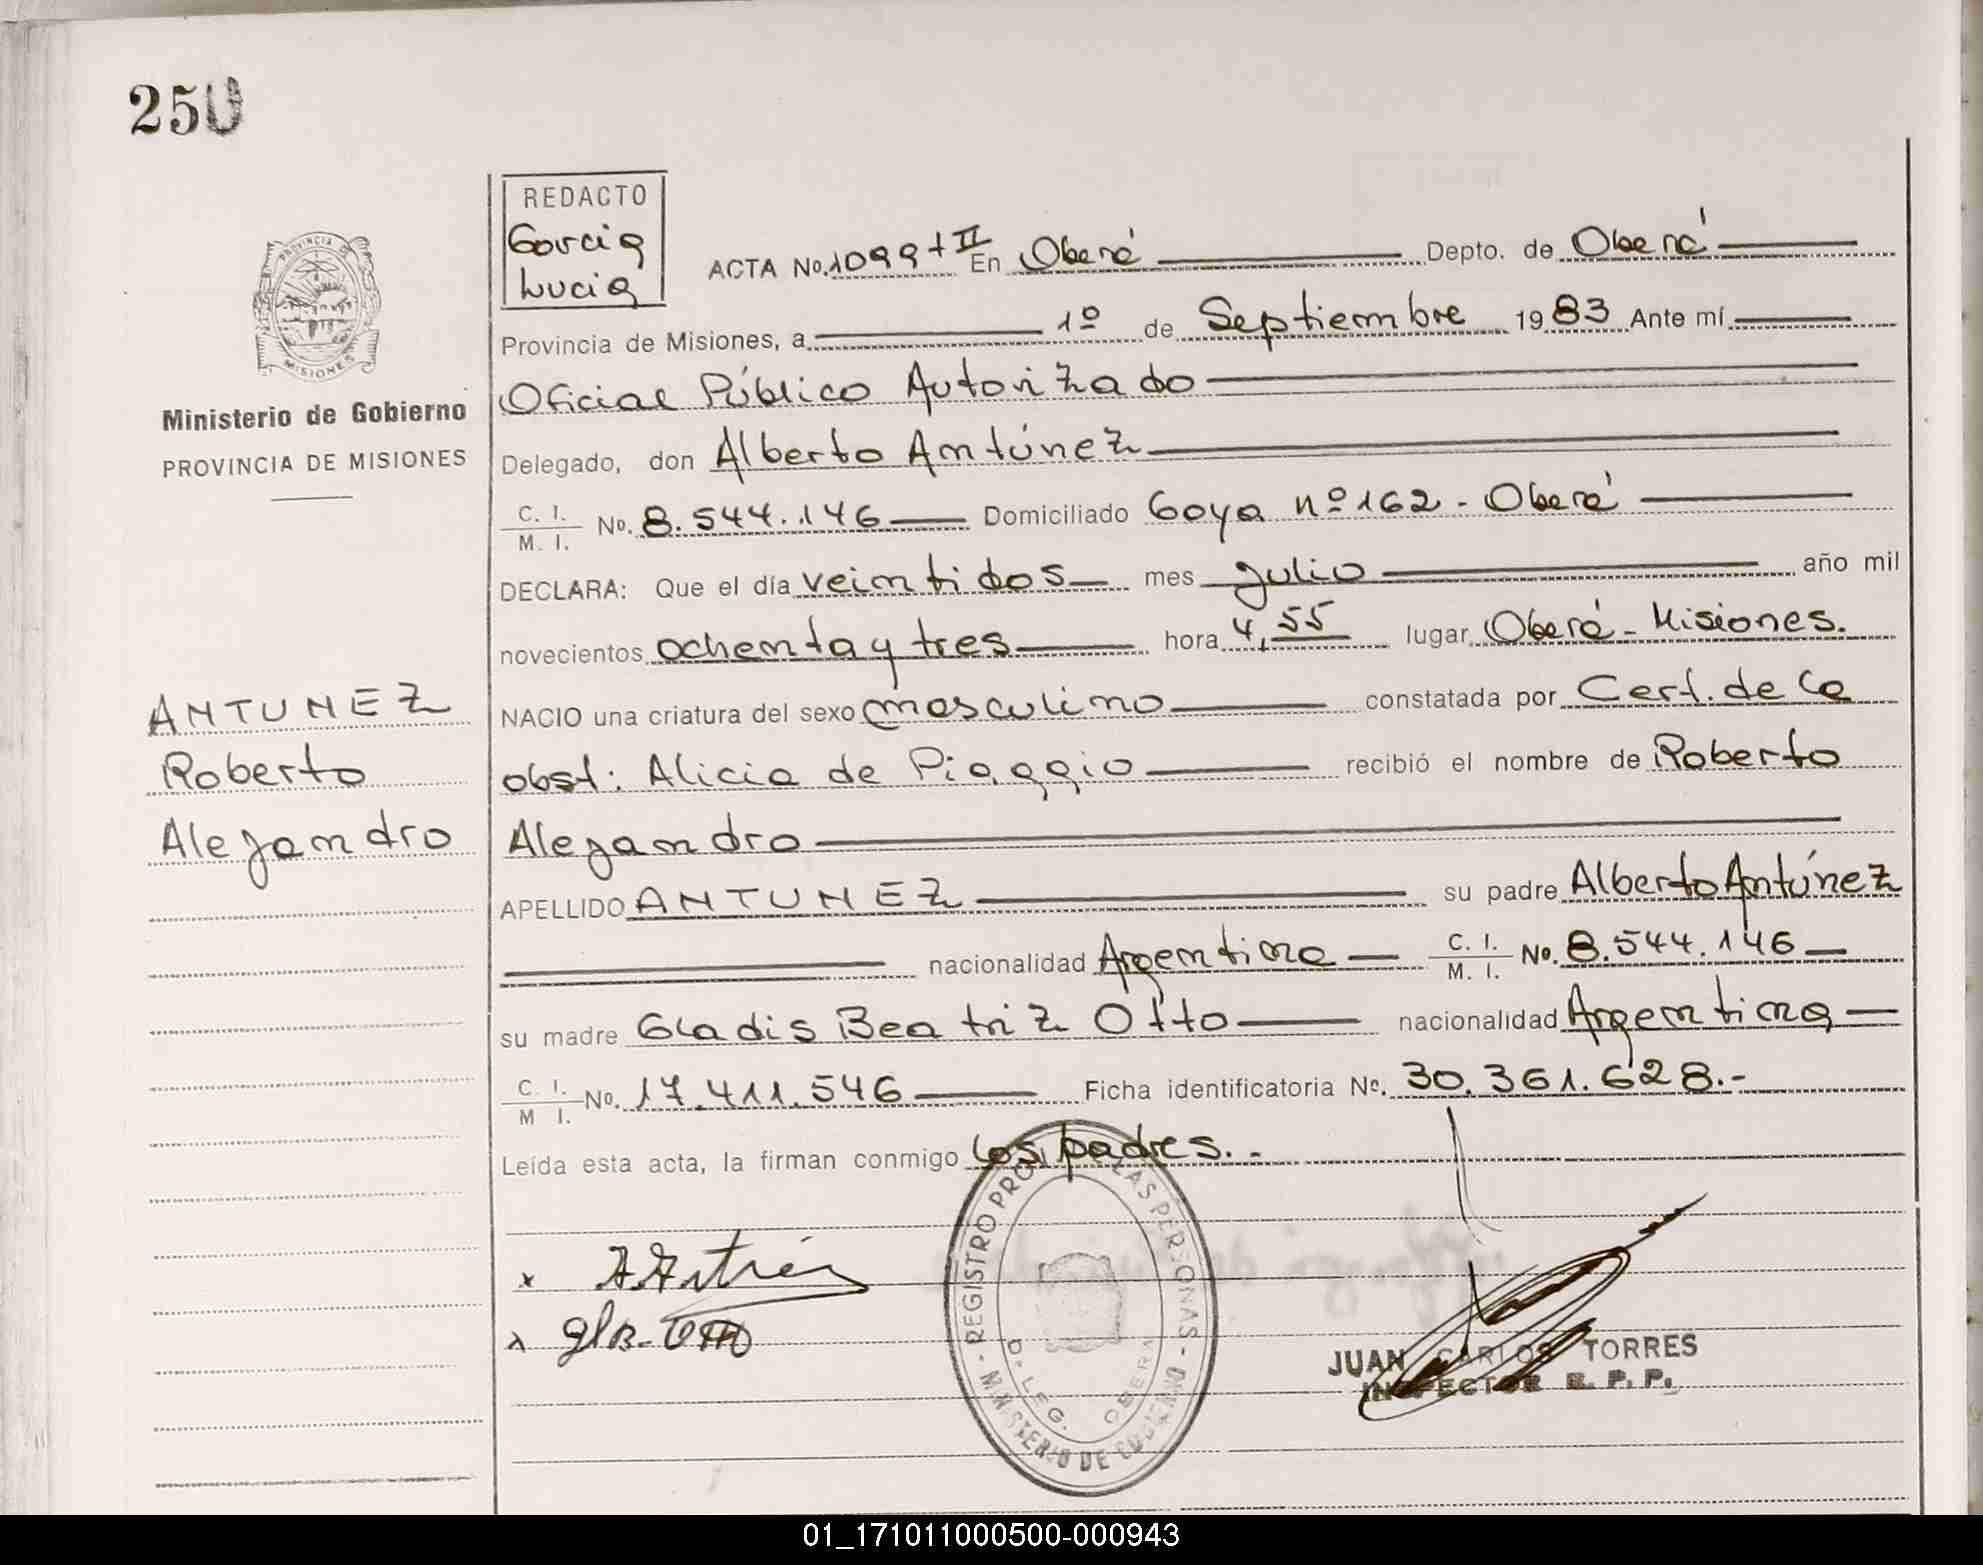 250
REDACTO
Garcia
Lucia
ACTA No. 1099 t II En Oberá Depto. de Oberá
Provincia de Misiones, a 1º de Septiembre 1983 Ante mí
Oficial Público Autorizado
Delegado, don Alberto Antúnez
C. I. M. I. No. 8.544.146 Domiciliado Goya nº 162 - Oberá
DECLARA: Que el día veintidos mes julio año mil
novecientos ochenta y tres hora 4,55 lugar Oberá - Misiones.
NACIO una criatura del sexo masculino constatada por Cert. de la
obst: Alicia de Piaggio recibió el nombre de Roberto
Alejandro
APELLIDO ANTUNEZ su padre Alberto Antúnez
nacionalidad Argentina C. I. M. I. No. 8.544.146
su madre Gladis Beatriz Otto nacionalidad Argentina
C. I. M I. No. 17.411.546 Ficha identificatoria No. 30.361.628.-
Leída esta acta, la firman conmigo los padres.-
PROVINCIA DE
MISIONES
Ministerio de Gobierno
PROVINCIA DE MISIONES
ANTUNEZ
Roberto
Alejandro
REGISTRO PRO LAS PERSONAS - MINISTERIO DE GOBIERNO -
DELEG. OBERA
JUAN CARLOS TORRES
INSPECTOR R. P. P.
01_171011000500-000943